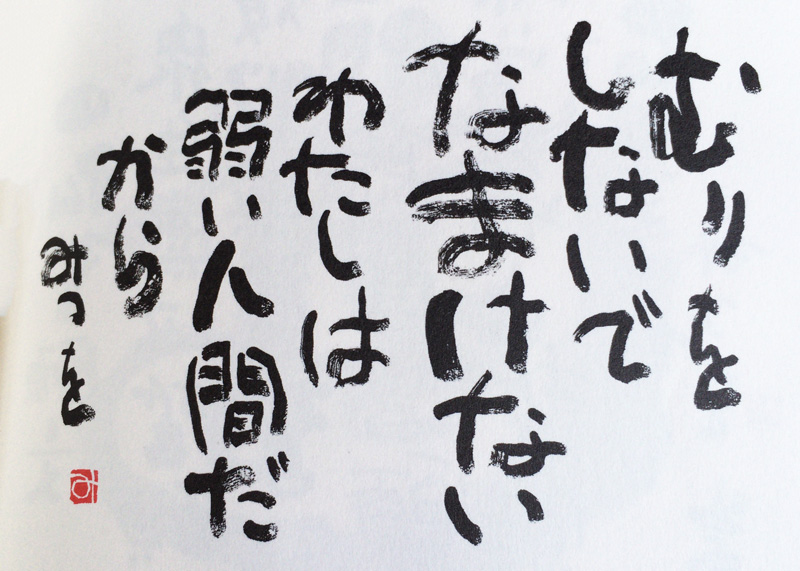 むりを
しないで
なまけない
わたしは
弱い人間だ
から
みつを
み